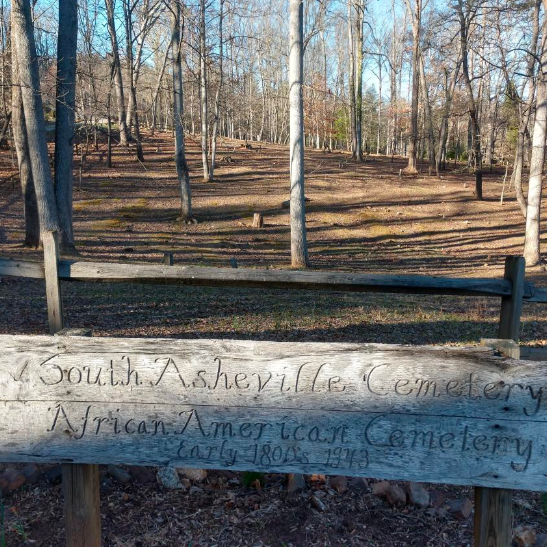 South Asheville Cemetery
African American Cemetery
Early 1800's 1943